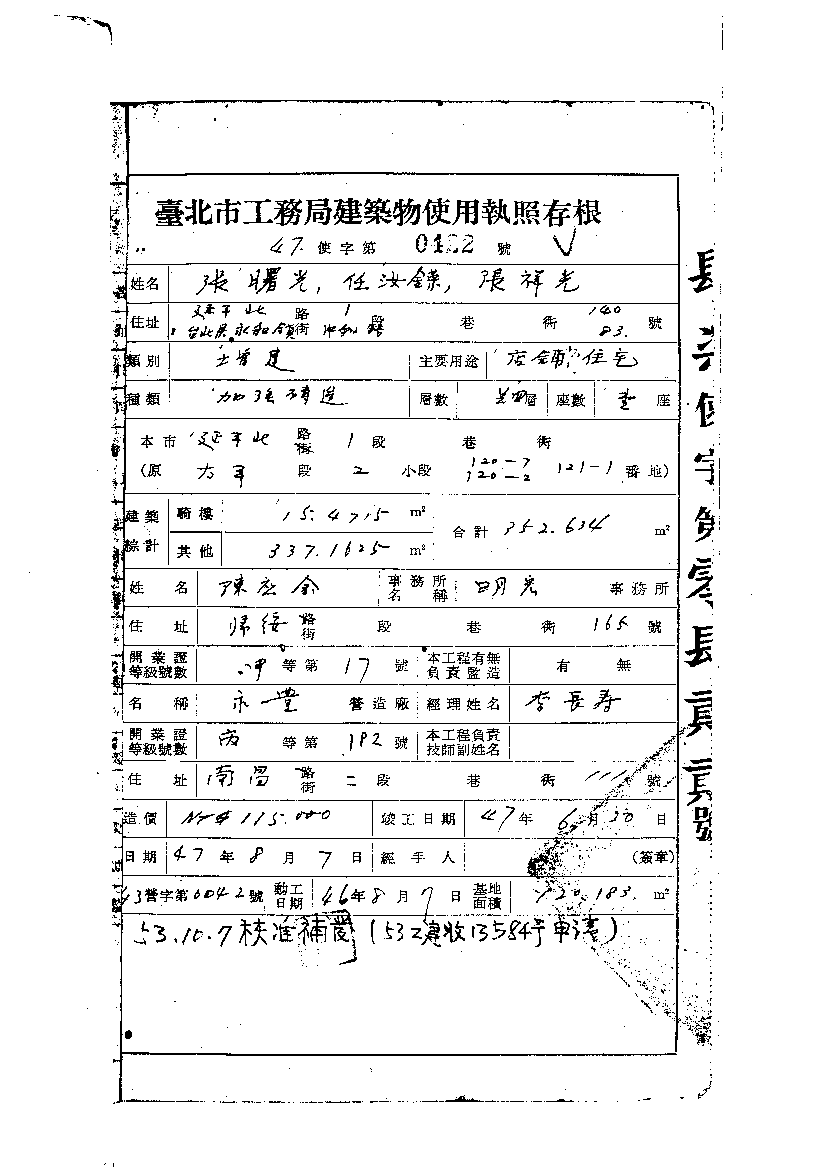 臺北市工務局建築物使用執照存根
47 使字第 0422 號
姓名 張曙光, 任汝鑅, 張祥光
住址 延平北 路 街 1 段 巷 衖 140 83. 號
台北縣永和鎮
類別 主要用途 店舖 住宅
種類 加強磚造 層數 層 座數 壹 座
本市 延平北 路 街 1 段 巷 衖
(原 段 2 小段 120-7 120-2 121-1 番地)
建築 綜計 騎樓 15.4715 m² 合計 352.634 m²
其他 337.1625 m²
姓名 事務所 名稱 事務所
住址 歸綏 路 街 段 巷 衖 165 號
開業證 等級號數 甲 等第 17 號 本工程有無 負責監造 有 無
名稱 永豐 營造廠 經理姓名 李長壽
開業證 等級號數 丙 等第 182 號 本工程負責 技師副姓名
住址 南昌 路 街 二段 巷 衖 111 號
造價 NT$ 115.000 竣工日期 47 年 6 月 30 日
日期 47 年 8 月 7 日 經手人 (簽章)
43 營字第 0042 號 動工 日期 46 年 8 月 7 日 基地 面積 120.183. m²
53.10.7 校准補發 (53工建收13584号申請)
使字第零肆貳貳號